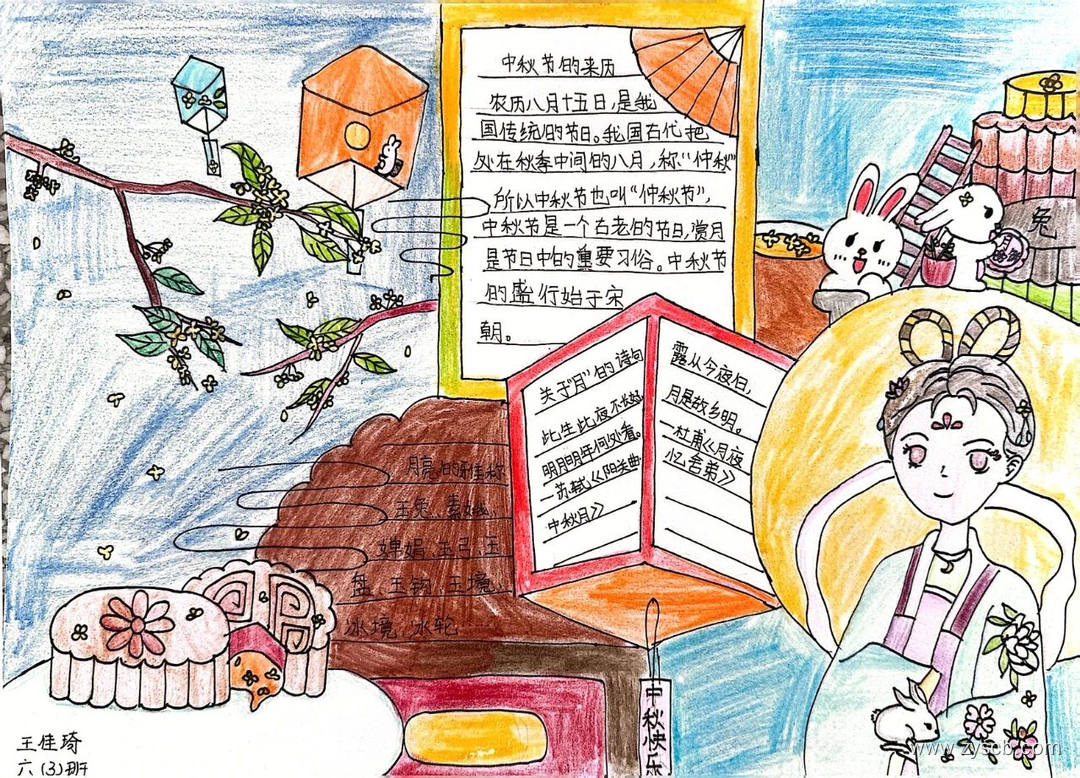 中秋节的来历
农历八月十五日,是我
国传统的节日。我国古代把
处在秋季中间的八月,称"仲秋"
所以中秋节也叫"仲秋节",
中秋节是一个古老的节日,赏月
是节日中的重要习俗。中秋节
的盛行始于宋
朝。
关于"月"的诗句
此生此夜不长好
明月明年何处看。
—苏轼《阳关曲
中秋月》
露从今夜白,
月是故乡明。
—杜甫《月夜
忆舍弟》
兔
月亮的雅称
玉兔、素娥、
婵娟、玉弓、玉
盘、玉钩、玉境、
冰境、冰轮……
中秋快乐
王佳琦
六(3)班
www.zyscb.com